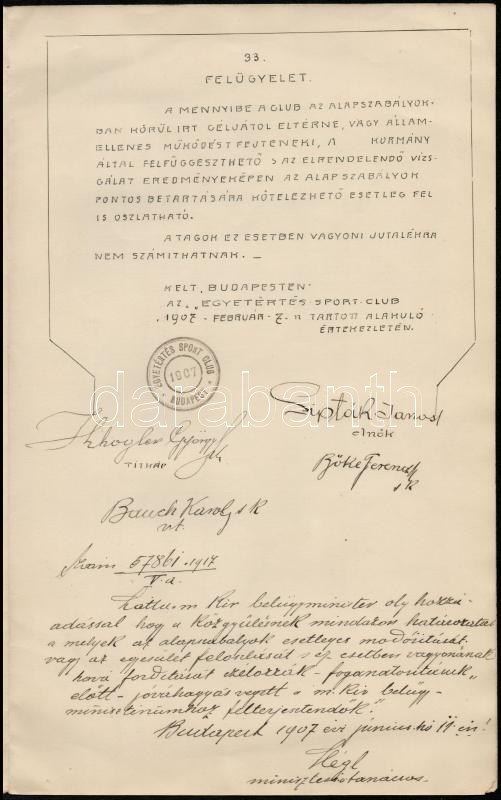 33.
FELÜGYELET.
A MENNYIBE A CLUB AZ ALAPSZABÁLYOK-
BAN KÖRÜL IRT CÉLJÁTOL ELTÉRNE, VAGY ÁLLAM-
ELLENES MŰKÖDÉST FEJTENEKI, A KORMÁNY
ÁLTAL FELFÜGGESZTHETŐ S AZ ELRENDELENDŐ VIZS-
GÁLAT EREDMÉNYEKÉPEN AZ ALAPSZABÁLYOK
PONTOS BETARTÁSÁRA KÖTELEZHETŐ ESETLEG FEL
IS OSZLATHATÓ.
A TAGOK EZ ESETBEN VAGYONI JUTALÉKRA
NEM SZÁMITHATNAK. –
KELT, BUDAPESTEN
AZ „EGYETÉRTÉS - SPORT - CLUB
1907 - FEBRUÁR - 7. n TARTOTT ALAKULÓ
ÉRTEKEZLETÉN.
EGYETÉRTÉS SPORT CLUB
1907
BUDAPEST
darabanth
Sipták János
elnök
György
TITKÁR
Bőke Ferencz
s k
Bauch Karoly s k
vt.
57861.1917
V. a.
Látta m kir belügyminister oly hozzá-
adással hogy a közgyűlésnek mindazon határozatai
a melyek az alapszabályok esetleges módosítását
vagy az egyesület feloszlását s ez esetben vagyonának
hová fordítását célozzák - foganatosításuk
előtt - jóváhagyás végett a m. kir belügy-
ministeriumhoz felterjesztendők."
Budapest 1907 évi június hó 11 én!
ministeri tanácsos